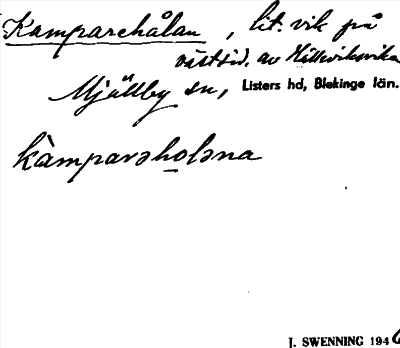 Kamparehålan, lit. vik på
västsid. av Hälleviksvika
Mjällby sn, Listers hd, Blekinge län.
kàmparəholəna
J. SWENNING 1946